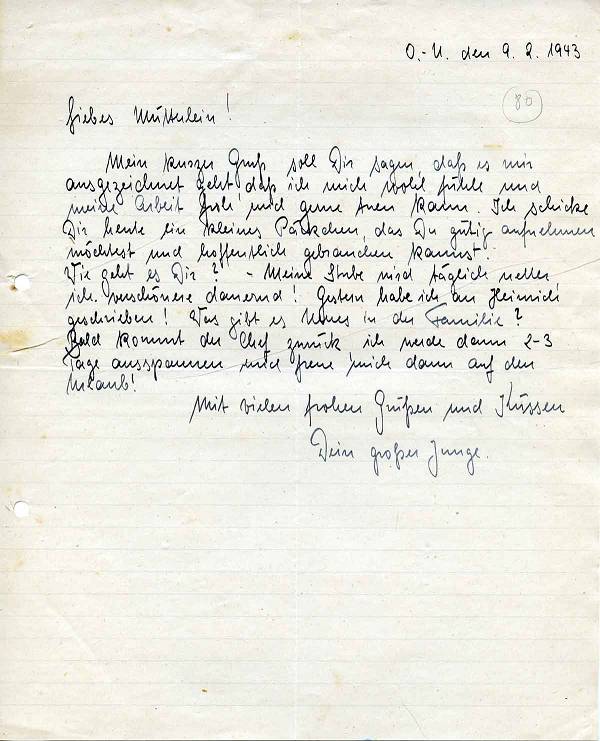 O.-U. den 9. 2. 1943
80
Liebes Mütterlein!
Mein kurzer Gruß soll Dir sagen, daß es mir
ausgezeichnet geht, daß ich mich wohl fühle und
meine Arbeit und gerne tuen kann. Ich schicke
Dir heute ein kleines Päckchen, das Du gütig aufnehmen
möchtest und hoffentlich gebrauchen kannst.
Wie geht es Dir? - Meine Stube wird täglich netter
ich verschönere dauernd! Gestern habe ich an Heinrich
geschrieben! Was gibt es Neues in der Familie?
Bald kommt der Chef zurück, ich werde dann 2-3
Tage ausspannen und freue mich dann auf den
Urlaub!
Mit vielen frohen Grüßen und Küssen
Dein großer Junge.